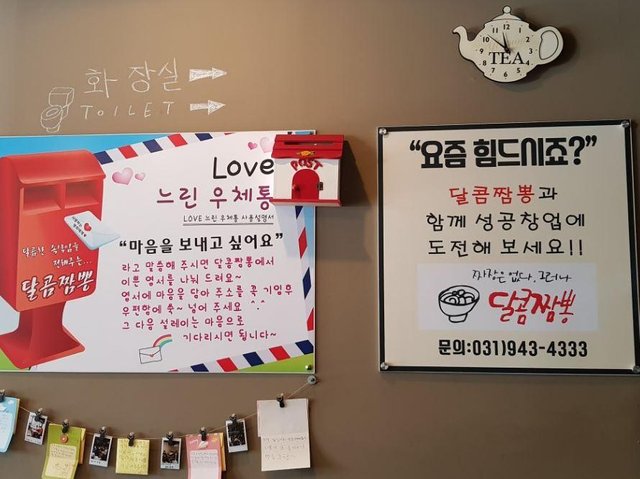 화장실 →
TOILET →
TEA
Love
느린 우체통
LOVE 느린 우체통 사용설명서
POST
"마음을 보내고 싶어요"
라고 말씀해 주시면 달콤짬뽕에서
이쁜 엽서를 나눠 드려요~
엽서에 마음을 담아 주소를 꼭 기입후
우편함에 쏙~ 넣어 주세요
그 다음 설레이는 마음으로
기다리시면 됩니다~
달콤한
전해주는...
달콤짬뽕
"요즘 힘드시죠?"
달콤짬뽕과
함께 성공창업에
도전해 보세요!!
짜장은 없다, 그러나
달콤짬뽕
문의:031)943-4333